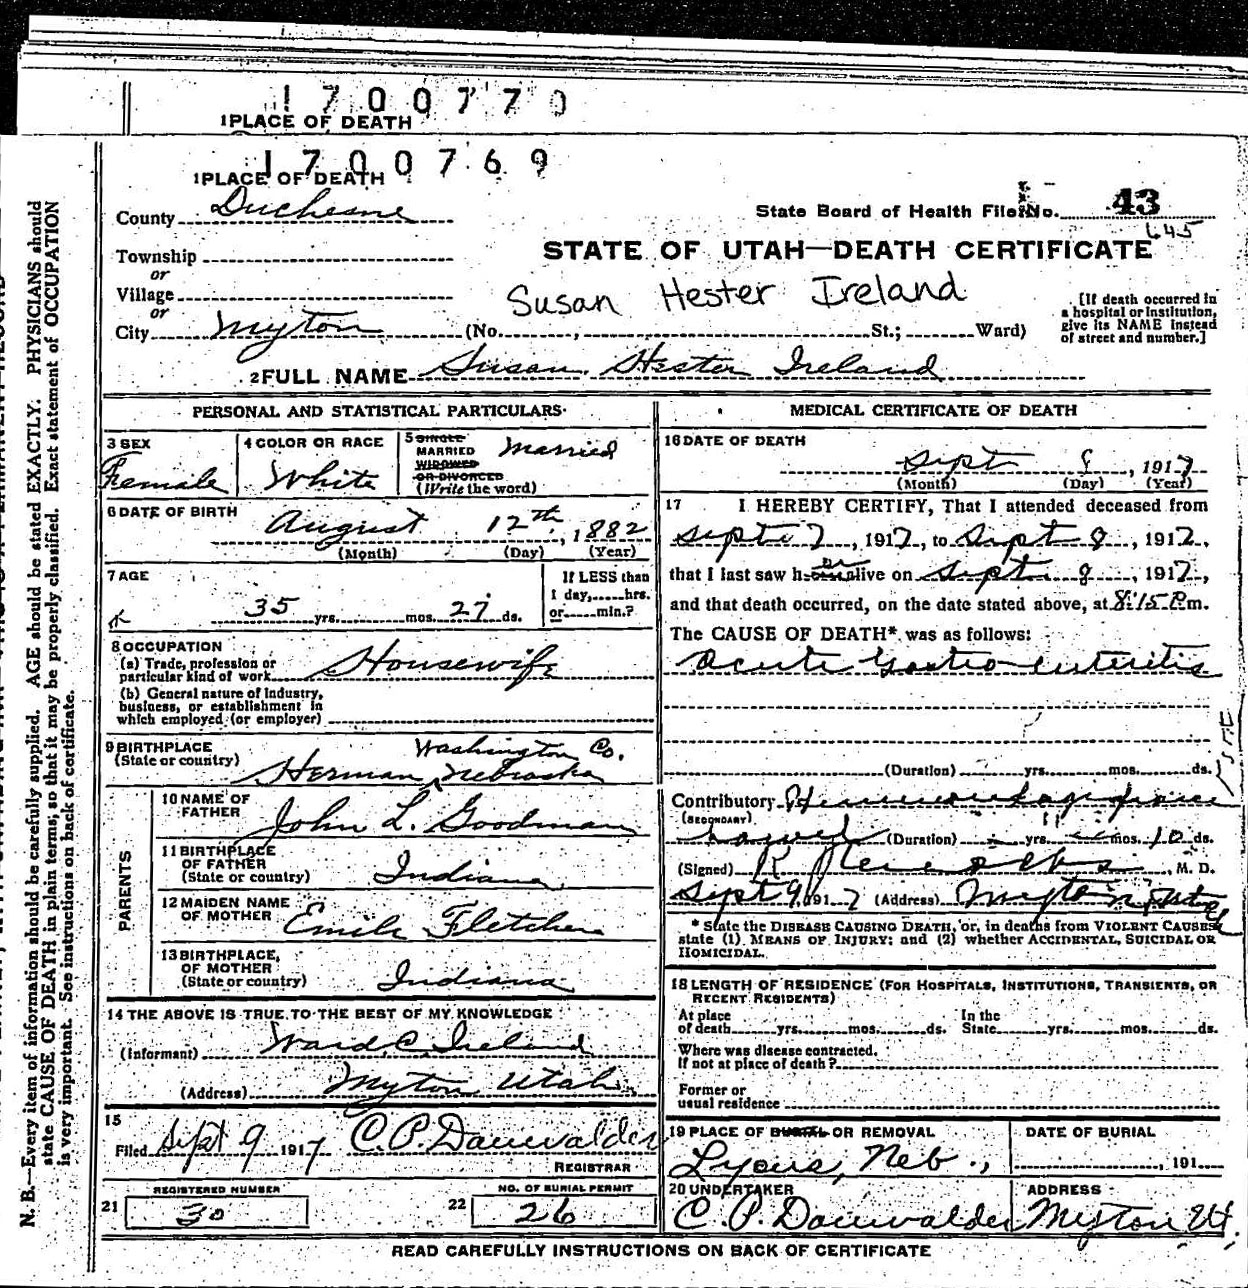 1700770
1 PLACE OF DEATH
1700769
1 PLACE OF DEATH
County Duchesne
State Board of Health File No. 43
645
Township
STATE OF UTAH—DEATH CERTIFICATE
or
Village
Susan Hester Ireland
or
City Myton (No. , St.; Ward)
[If death occurred in
a hospital or institution,
give its NAME instead
of street and number.]
2 FULL NAME Susan Hester Ireland
PERSONAL AND STATISTICAL PARTICULARS
3 SEX
Female
4 COLOR OR RACE
White
5 SINGLE
MARRIED
WIDOWED
OR DIVORCED
(Write the word)
Married
6 DATE OF BIRTH
August 12th, 1882
(Month) (Day) (Year)
7 AGE
35 yrs. mos. 27 ds.
If LESS than
1 day, hrs.
or min.?
8 OCCUPATION
(a) Trade, profession or
particular kind of work Housewife
(b) General nature of industry,
business, or establishment in
which employed (or employer)
9 BIRTHPLACE
(State or country)
Washington Co.
Herman, Nebraska
PARENTS
10 NAME OF
FATHER
John L. Goodman
11 BIRTHPLACE
OF FATHER
(State or country)
Indiana
12 MAIDEN NAME
OF MOTHER
Fletcher
13 BIRTHPLACE,
OF MOTHER
(State or country)
Indiana
14 THE ABOVE IS TRUE TO THE BEST OF MY KNOWLEDGE
(Informant) Ward C. Ireland
(Address) Myton Utah
15
Filed Sept 9 1917 C. P. Dauwalder
REGISTRAR
REGISTERED NUMBER
21 30
NO. OF BURIAL PERMIT
22 26
MEDICAL CERTIFICATE OF DEATH
16 DATE OF DEATH
Sept 8, 1917
(Month) (Day) (Year)
17 I HEREBY CERTIFY, That I attended deceased from
Sept 7, 1917, to Sept 8, 1917,
that I last saw h er alive on Sept 8, 1917,
and that death occurred, on the date stated above, at 8:15 P.m.
The CAUSE OF DEATH* was as follows:
Acute Gastro enteritis
(Duration) yrs. mos. ds.
Contributory Hemmorhage from
(SECONDARY)
(Duration) yrs. mos. 10 ds.
(Signed) R , M. D.
Sept 9, 1917 (Address) Myton, Utah
* State the DISEASE CAUSING DEATH, or, in deaths from VIOLENT CAUSES,
state (1) MEANS OF INJURY; and (2) whether ACCIDENTAL, SUICIDAL OR
HOMICIDAL.
18 LENGTH OF RESIDENCE (FOR HOSPITALS, INSTITUTIONS, TRANSIENTS, OR
RECENT RESIDENTS)
At place In the
of death yrs. mos. ds. State yrs. mos. ds.
Where was disease contracted.
If not at place of death?
Former or
usual residence
19 PLACE OF BURIAL OR REMOVAL
Lyons, Neb.,
DATE OF BURIAL
, 191
20 UNDERTAKER
C. P. Dauwalder
ADDRESS
Myton Ut.
READ CAREFULLY INSTRUCTIONS ON BACK OF CERTIFICATE
N. B.—Every item of information should be carefully supplied. AGE should be stated EXACTLY. PHYSICIANS should
state CAUSE OF DEATH in plain terms, so that it may be properly classified. Exact statement of OCCUPATION
is very important. See instructions on back of certificate.